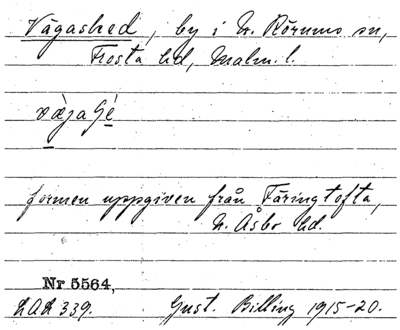 Vägasked, by i N. Rörums sn,
Frosta hd, Malm. l.
væ̀jaʃé
formen uppgiven från Färingtofta,
N. Åsbo hd.
Nr 5564,
LAL 339. Gust. Billing 1915-20.